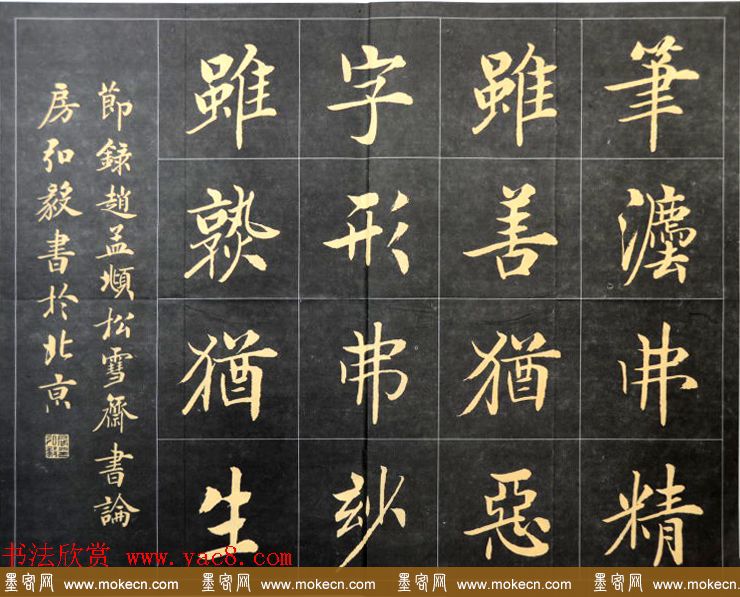 筆灋弗精
雖善猶惡
字形弗玅
雖孰猶生
節録趙孟頫松雪齋書論
房弘毅書於北京
书法欣赏 www.yac8.com
墨客网 www.mokecn.com 墨客网 www.mokecn.com 墨客网 www.mokecn.com 墨客网 www.mokecn.com